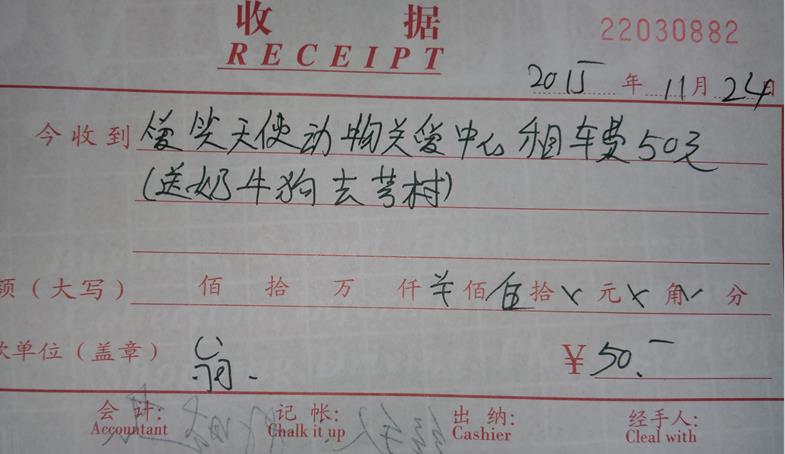 收据
22030882
RECEIPT
2015年11月24日
今收到 爱笑天使动物关爱中心租车费50元
(送奶牛狗去芳村)
额(大写) 佰 拾 万 仟 佰 伍 拾 元 角 分
款单位(盖章) ¥50.-
会计: 记帐: 出纳: 经手人:
Accountant Chalk it up Cashier Cleal with